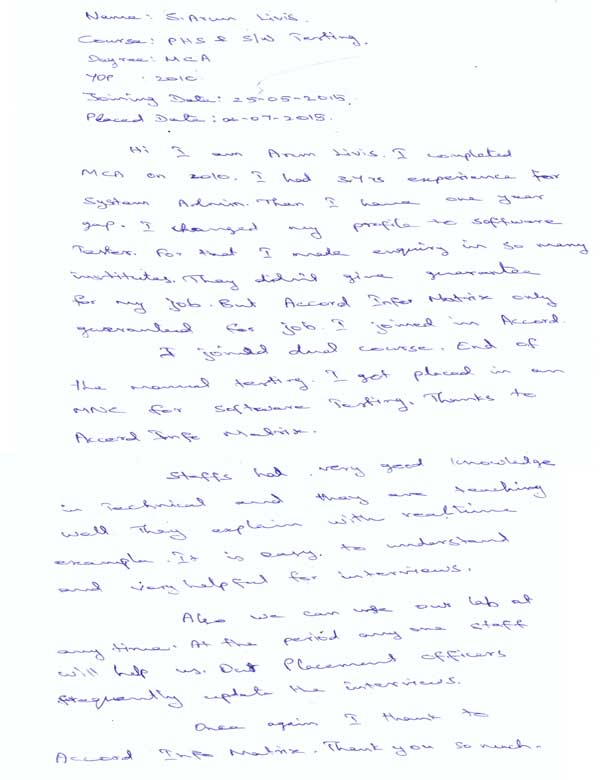 Name: S. Arun Livis.
Course: PHS & S/W Testing.
Degree: MCA
YOP : 2010
Joining Date: 25-05-2015.
Placed Date: 02-07-2015.
Hi I am Arun Livis. I completed
MCA on 2010. I had 3Yrs experience for
System Admin. Then I have one year
gap. I changed my profile to software
Tester. For that I made enquiry in so many
institutes. They didn't give guarantee
for my job. But Accord Info Matrix only
guaranteed for job. I joined in Accord.
I joined dual course. End of
the manual testing. I got placed in an
MNC for Software Testing. Thanks to
Accord Info Matrix.
Staffs had very good knowledge
in Technical and they are teaching
well They explain with realtime
example. It is easy. to understand
and very helpful for interviews.
Also we can use our lab at
any time. At the period any one staff
will help us. Placement officers
frequently update the interviews.
Once again I thank to
Accord Info Matrix. Thank you so much.